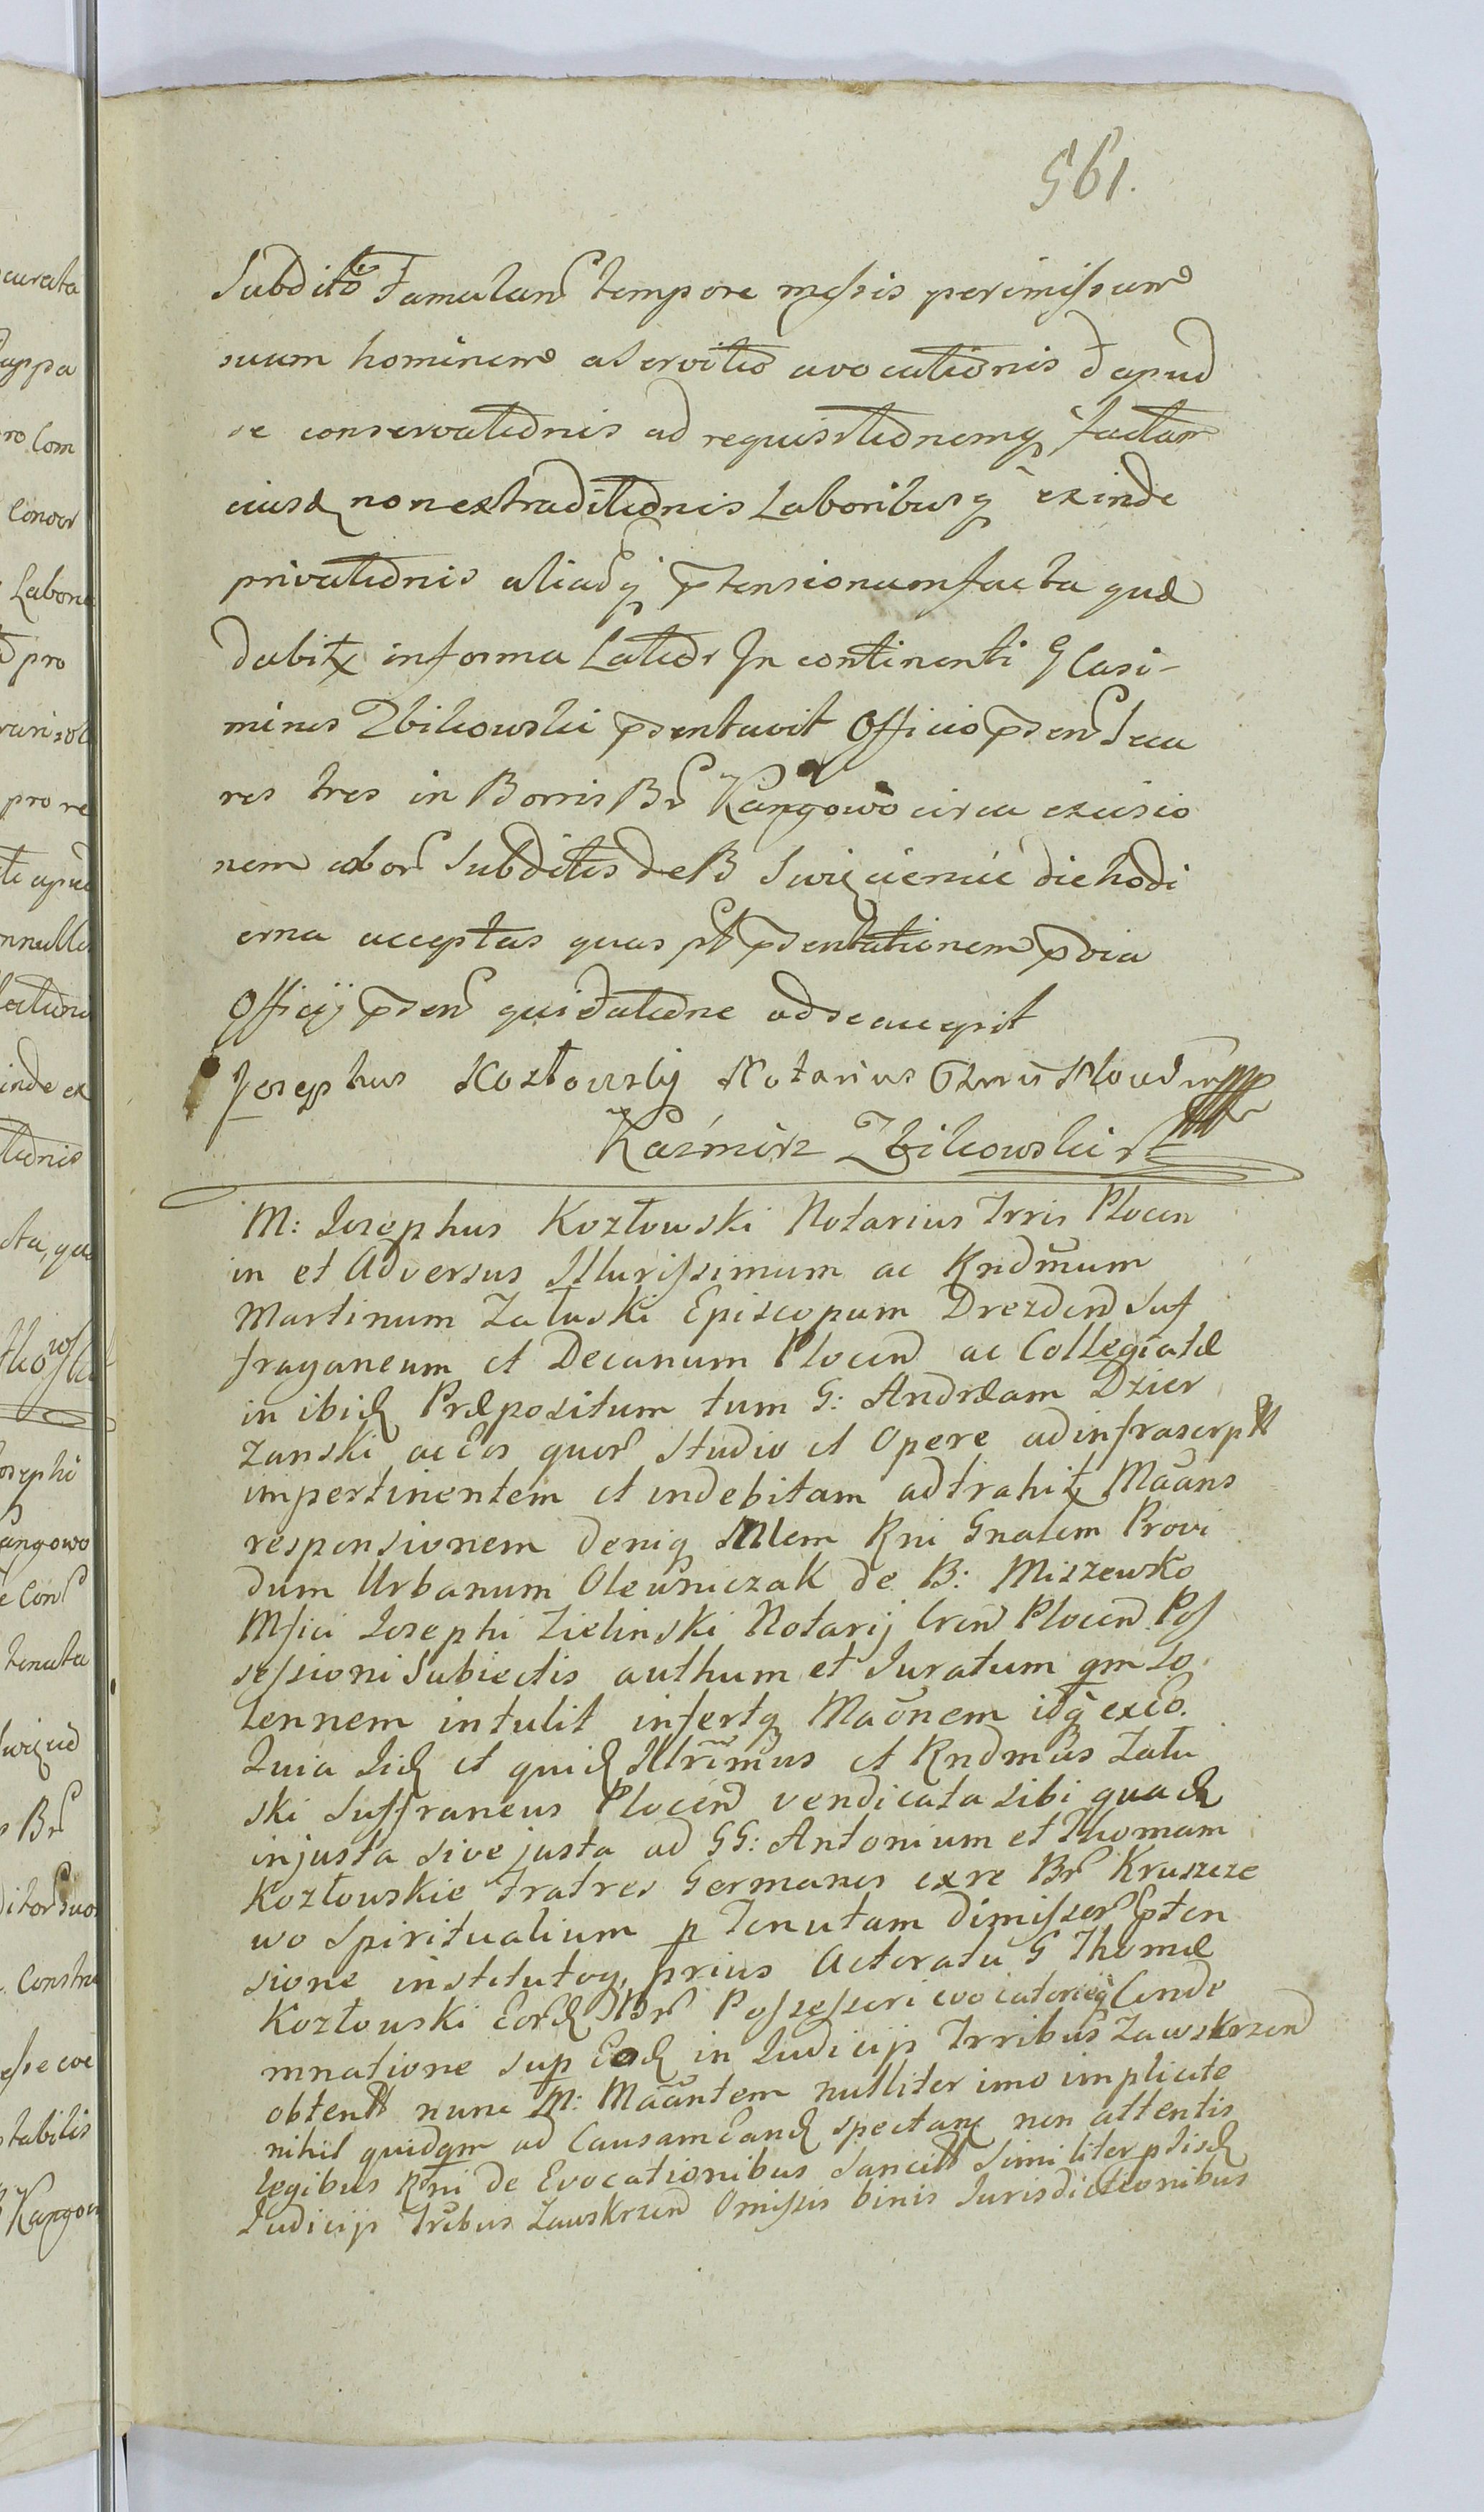 561.
Subdito Famulan tempore messis perimissum
suum hominem a servitio avocationis d apud
se conservationis ad requisitionemq factam
eiusd non extraditionis Laboribusq exinde
privationis aliarq ptensionum facta quæ
dabit in forma Lation In continenti G Casi-
mirus Zbikowski psentavit Officio psen Secu
res tres in Bonis Br Kanigowo circa excisio
nem arbor Subditis de B Swięcienie die hodi
erna acceptas quas pt psentationem pvia
Officij psen quietatione ad se accepit
Josephus Kozłowsky Notarius Trris Plocen mpp
Kaźmirz Zbikowski
M: Josephus Kozłowski Notarius Trris Plocen
in et Adversus Illurissimum ac Rndmum
Martinum Załuski Episcopum Drezden Suf
fraganeum et Decanum Plocen ac Collegiatæ
in ibid Præpositum tum G: Andræam Dzier
zanski ac Eos quor Studio et Opere ad infrascrptt
impertinentem et indebitam adtrahit Maans
responsionem deniq Mlem Rni Gnalem Provi
dum Urbanum Olewniczak de B: Miszewko
Mfici Josephi Zielinski Notarij Cren Plocen Pos
sessioni Subiectis authum et Juratum qm so
lennem intulit infertq Maonem idq exeo.
Quia Iid et quid Illrimus et Rndmus Zału
ski Suffraneus Plocen vendicata sibi quad
injusta sive justa ad GG: Antonium et Thomam
Kozłowskie Fratres Germanos ex re Br Kruszcze
wo Spiritualium p Tenutam dimisser Epten
sione institutoq, prius Actoratu G Thomæ
Kozłowski Eord Br Possessori evocatorieq Conde
mnatione sup Eod in Judicijs Trribus Zawskrzen
obtentt nunc M: Maantem nulliter imo implicite
nihil quidqm ad Causam Eand spectan non attentis
legibus Rni de Evocationibus Sancitt Similiter ptisd
Judicijs Trribus Zawskrzen Omissis binis Jurisdictionibus